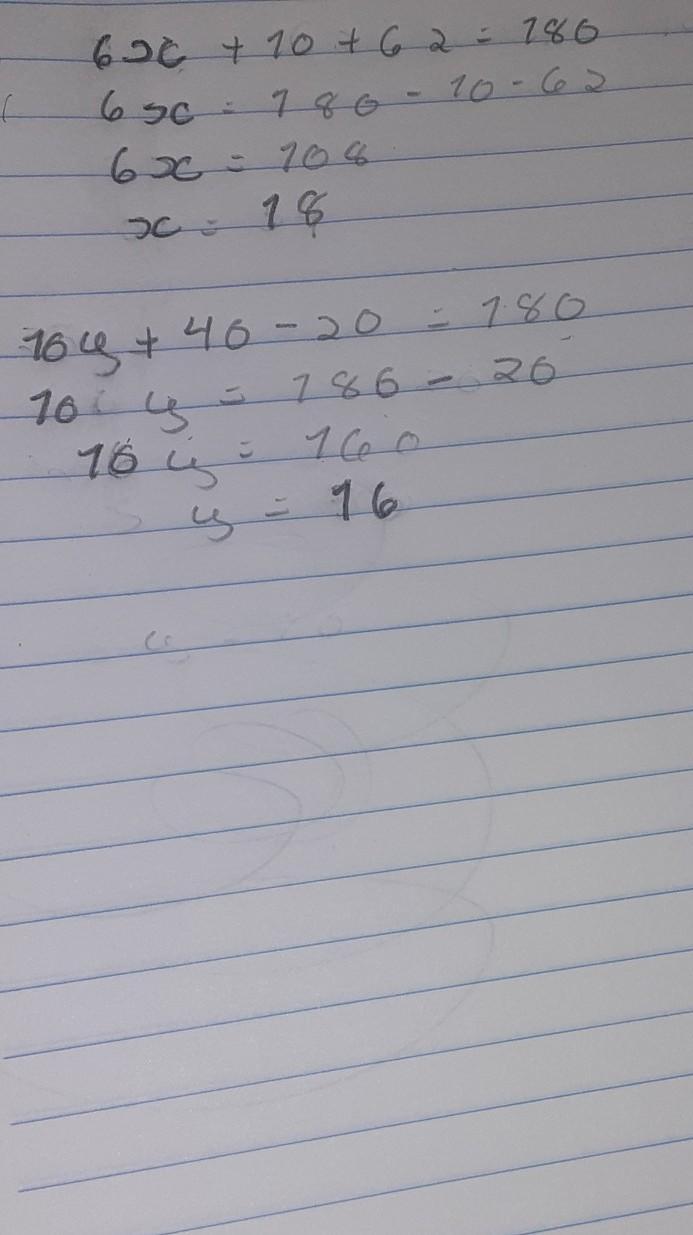 6x + 10 + 62 = 180
6x = 180 - 10 - 62
6x = 108
x = 18
10y + 40 - 20 = 180
10 y = 180 - 20
10 y = 160
y = 16